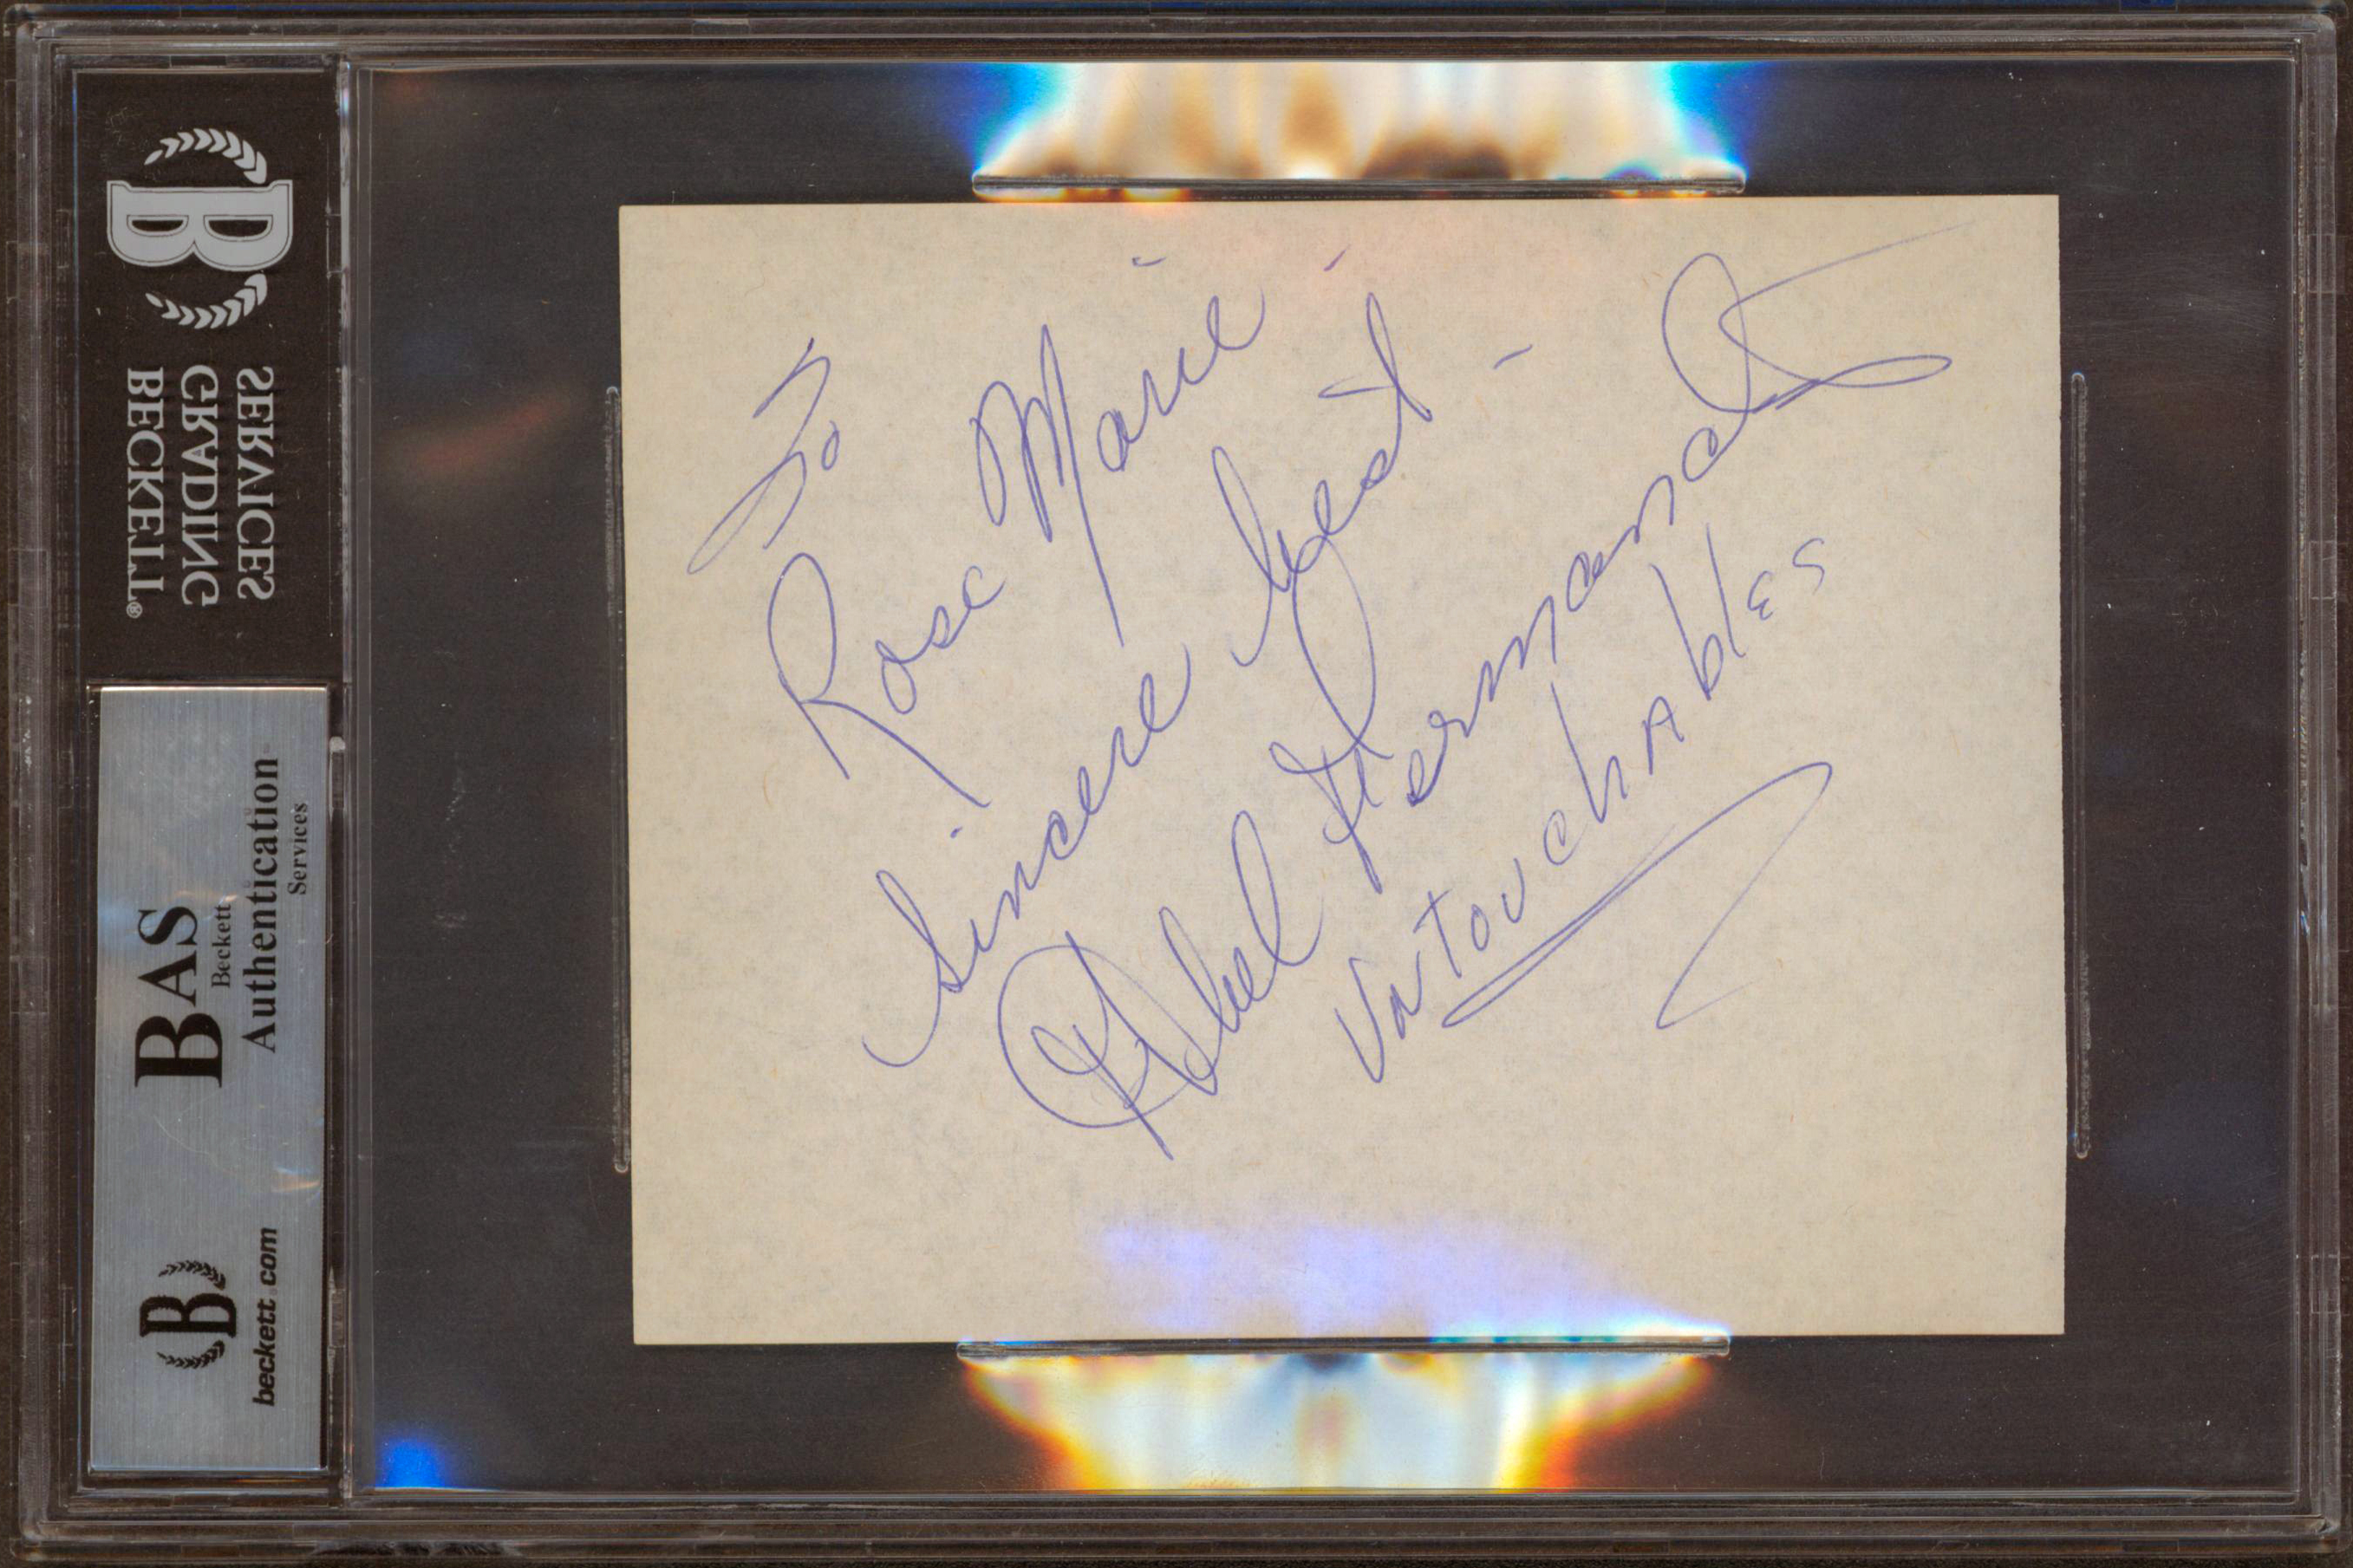 B
BECKETT®
GRADING
SERVICES
BAS
Beckett
Authentication
Services
B
beckett.com
To
Rose Marie
Sincere best -
Abel Fernandez
UnTouchAblES